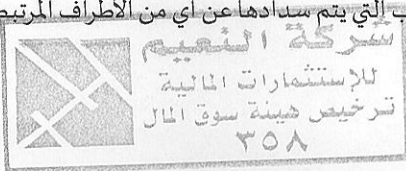 التي يتم سدادها عن أي من الأطراف المرتبط
شركة النعيم
للإستثمارات المالية
ترخيص هيئة سوق المال
٣٥٨